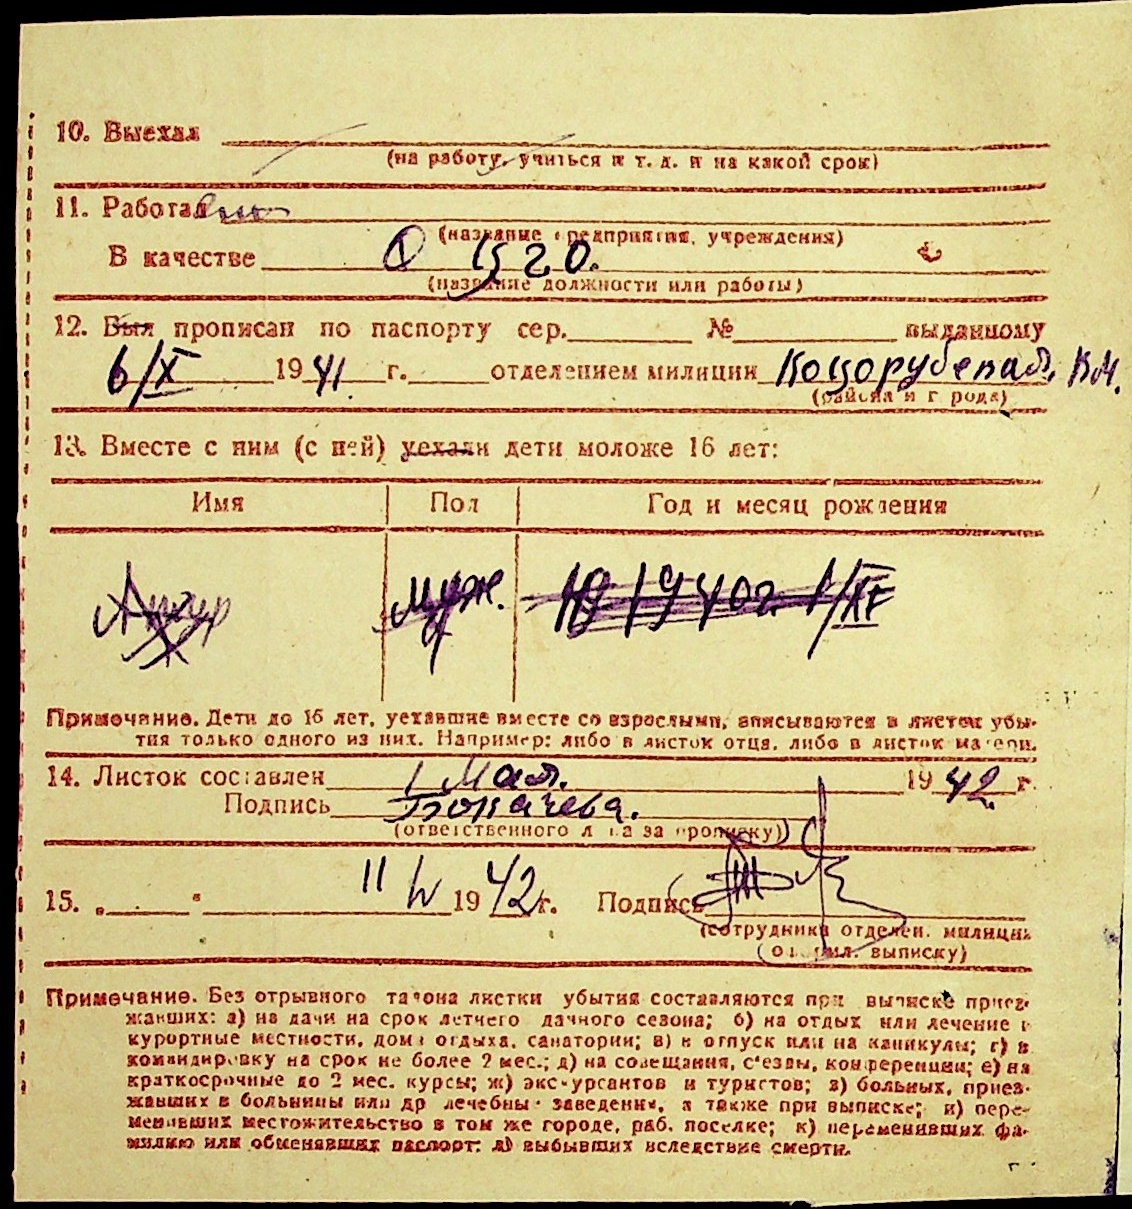 10. Выехал
(на работу, учиться и т. д. и на какой срок)
11. Работал
(название предприятия, учреждения)
В качестве 1520.
(название должности или работы)
12. Был прописан по паспорту сер. № выданному
6/X 1941 г. отделением милиции
(района и города)
13. Вместе с ним (с ней) уехали дети моложе 16 лет:
Имя Пол Год и месяц рождения
муж. 1940г.
Примечание. Дети до 16 лет, уехавшие вместе со взрослыми, вписываются в листок убы-
тия только одного из них. Например: либо в листок отца, либо в листок матери.
14. Листок составлен 1 Мая. 1942 г.
Подпись
(ответственного лица за прописку)
15. „ " 11 IV 1942 г. Подпись
(сотрудника отделен. милиции
выписку)
Примечание. Без отрывного талона листки убытия составляются при выписке приез-
жавших: а) на дачи на срок летнего дачного сезона; б) на отдых или лечение в
курортные местности, дома отдыха, санатории; в) в отпуск или на каникулы; г) в
командировку на срок не более 2 мес.; д) на совещания, с'езды, конференции; е) на
краткосрочные до 2 мес. курсы; ж) экскурсантов и туристов; з) больных, приез-
жавших в больницы или др лечебны заведения, а также при выписке; и) пере-
менивших местожительство в том же городе, раб. поселке; к) переменивших фа-
милию или обменявших паспорт; л) выбывших вследствие смерти.